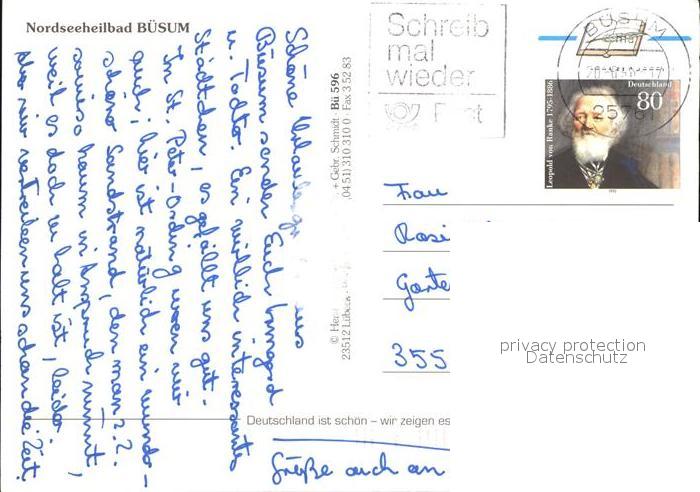 Nordseeheilbad BÜSUM
Schöne Urlaubsgr aus
Büsum sendet Euch Irmgard
u. Tochter. Ein wirklich interessantes
Städtchen, es gefällt uns gut.
In St. Peter-Ording waren wir
auch; hier ist natürlich ein wunder-
schöner Sandstrand, den man ??
sowieso kaum in Anspruch nimmt,
weil es doch zu kalt ist, leider.
Aber wir vertreiben uns schon die Zeit.
Grüße auch an
+ Gebr. Schmidt · Bü 596
23512 Lübeck
(04 51) 310 310 0 · Fax 3 52 83
Deutschland ist schön – wir zeigen es
Schreib
mal
wieder
Post
BÜSUM
25761
Deutschland
80
Leopold von Ranke 1795-1886
Frau
Rosi
Garte
355
privacy protection
Datenschutz